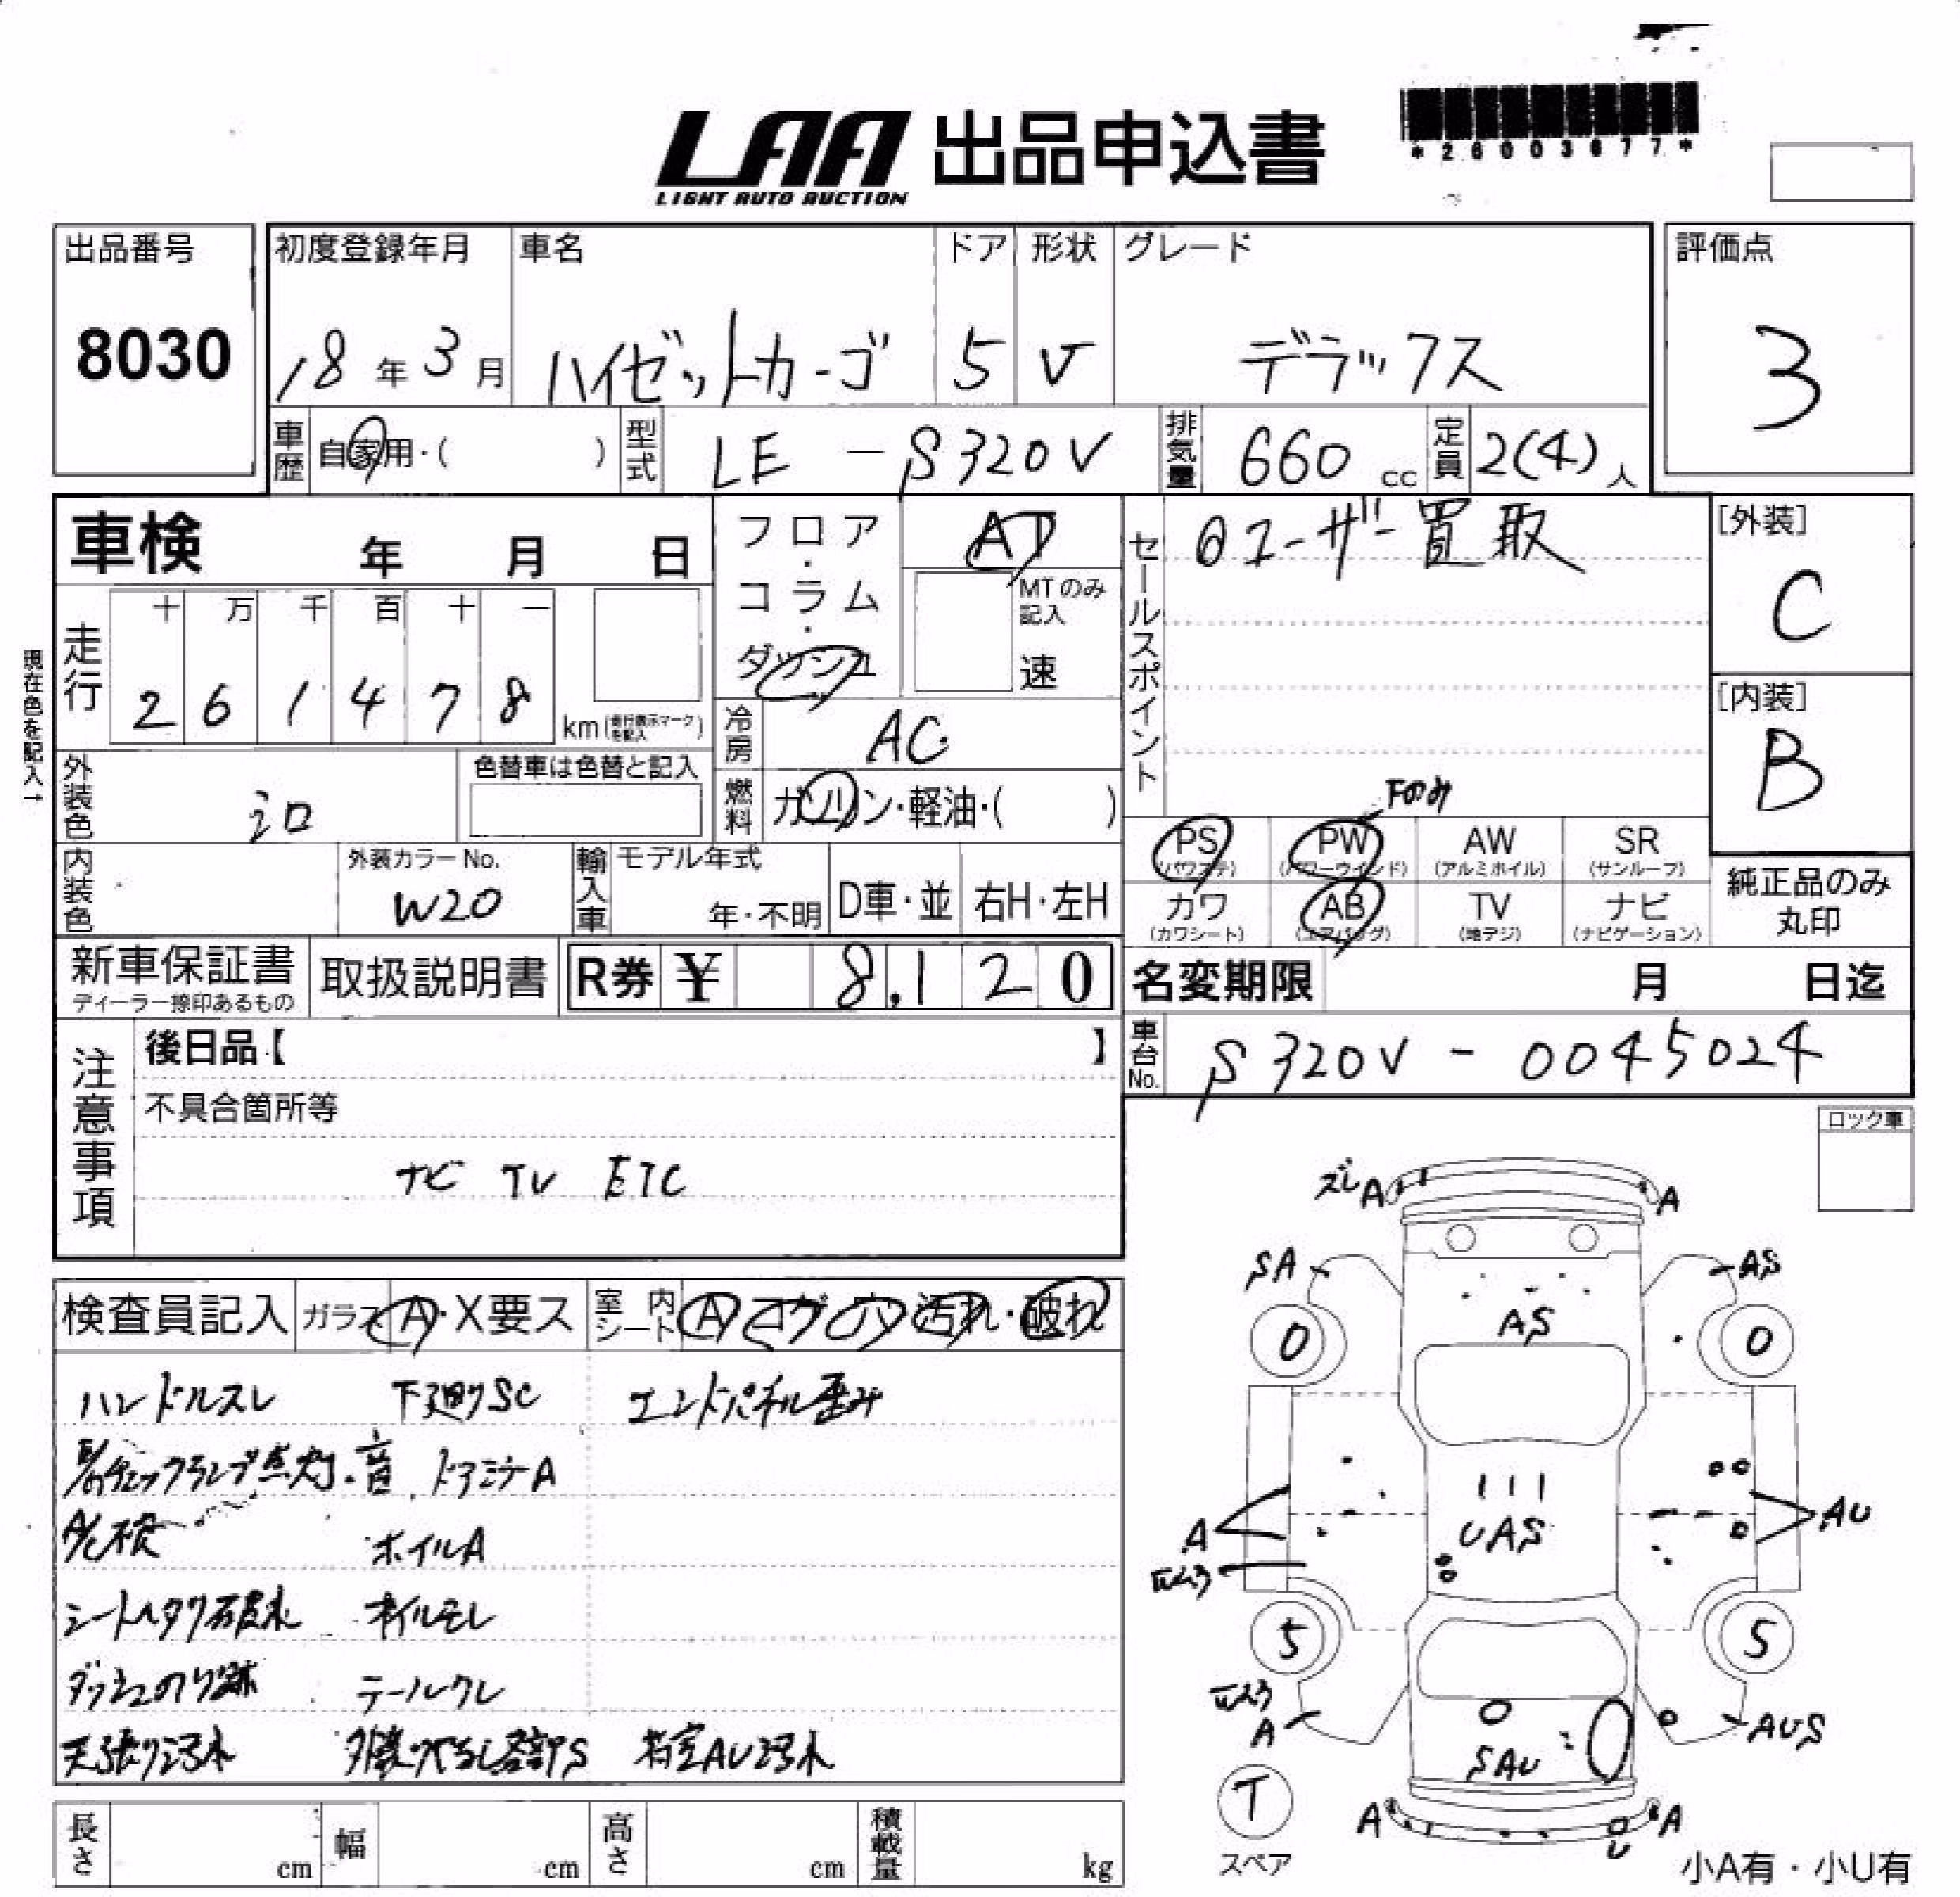 LAA 出品申込書
LIGHT AUTO AUCTION
*26003677*
出品番号 初度登録年月 車名 ドア 形状 グレード 評価点
8030 18年3月 ハイゼットカーゴ 5 V デラックス 3
車歴 自家用・( ) 型式 LE-S320V 排気量 660cc 定員 2(4)人
車検 年 月 日
フロア・コラム・ダッシュ AT
MTのみ記入 速
セールスポイント ユーザー買取
[外装] C
現在色を記入→
走行 十 万 千 百 十 一
2 6 1 4 7 8 km(走行表示マークを記入)
[内装] B
冷房 AC
外装色 シロ 色替車は色替と記入
燃料 ガソリン・軽油・( )
Fのみ
PS (パワステ) PW (パワーウインド) AW (アルミホイル) SR (サンルーフ)
カワ (カワシート) AB (エアバッグ) TV (地デジ) ナビ (ナビゲーション)
純正品のみ丸印
内装色 外装カラーNo. W20 輸入車 モデル年式 年・不明 D車・並 右H・左H
新車保証書 ディーラー捺印あるもの 取扱説明書 R券 ¥ 8,120
名変期限 月 日迄
車台No. S320V-0045024
注意事項 後日品【 】
不具合箇所等
ナビ TV ETC
ロック車
検査員記入 ガラス A・X要ス 室内シート A コゲ 穴 汚れ・破れ
ハンドルスレ 下廻りSC エンドパネル歪み
E/Gチェックランプ点灯・音 ドアミラーA
A/C検 ホイルA
シートヘタリ破れ オイルモレ
ダッシュのり跡 テールワレ
天張り汚れ 各部PS 荷室AU汚れ
ズレ A A
SA AS
AS
0 0
A UAS AU
5 5
A SAU AUS
T
スペア
A A
U
小A有・小U有
長さ cm 幅 cm 高さ cm 積載量 kg